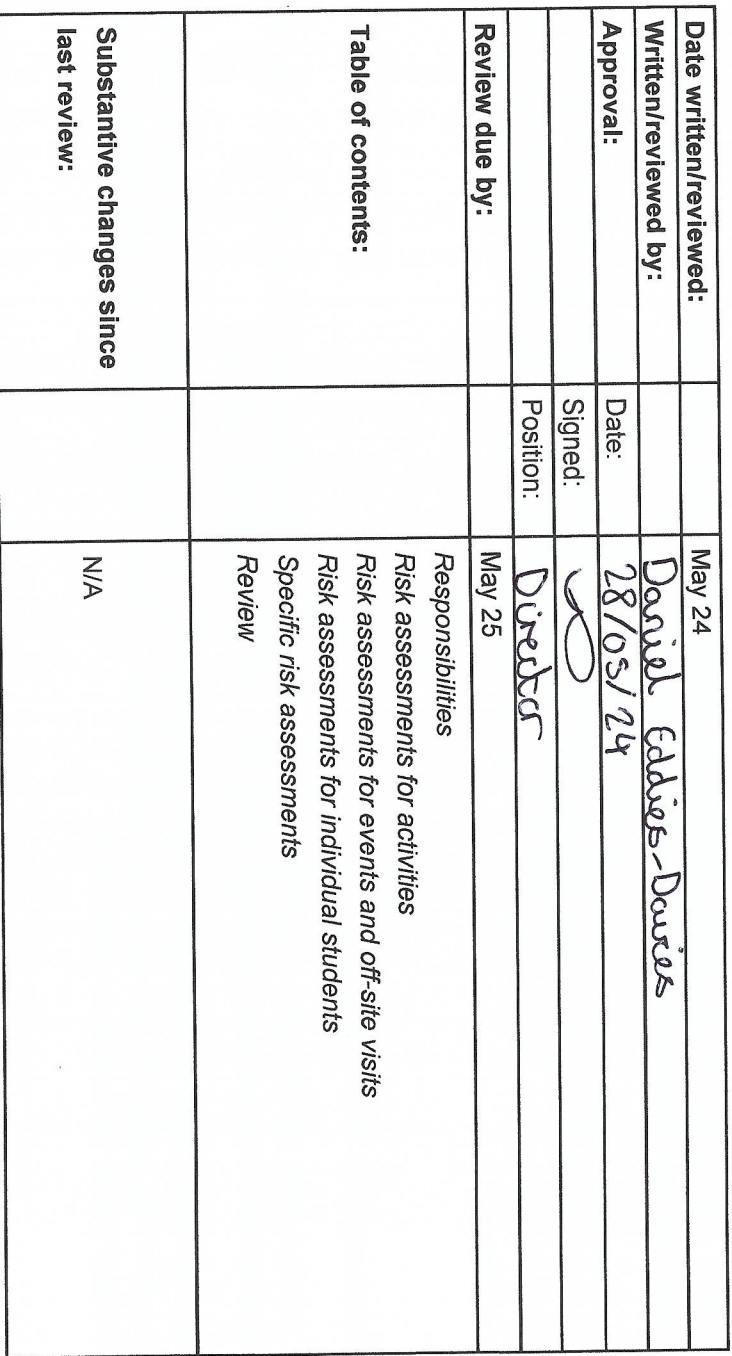 Date written/reviewed: May 24
Written/reviewed by: Daniel Eddies-Davies
Approval: Date: 28/05/24
Signed:
Position: Director
Review due by: May 25
Table of contents:
Responsibilities
Risk assessments for activities
Risk assessments for events and off-site visits
Risk assessments for individual students
Specific risk assessments
Review
Substantive changes since
last review:
N/A